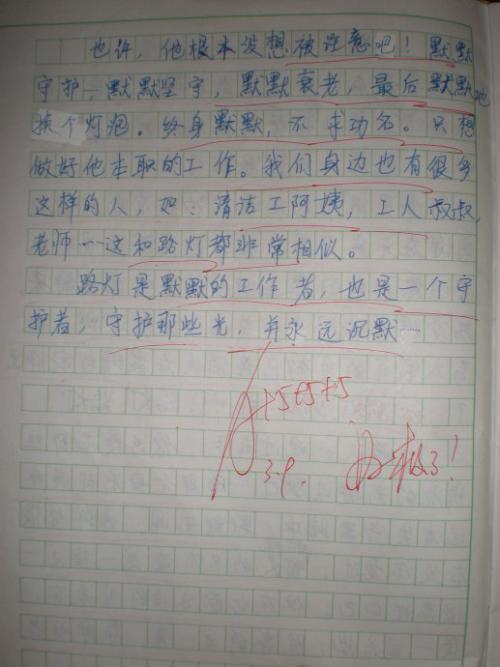 也许，他根本没想被注意吧！默默
守护，默默坚守，默默衰老，最后默默地
换个灯泡。终身默默，不求功名。只想
做好他本职的工作。我们身边也有很多
这样的人，如：清洁工阿姨，工人叔叔，
老师……这和路灯都非常相似。
路灯是默默的工作者，也是一个守
护者，守护那些光，并永远沉默……
+5+5+5
3.9.
极了！